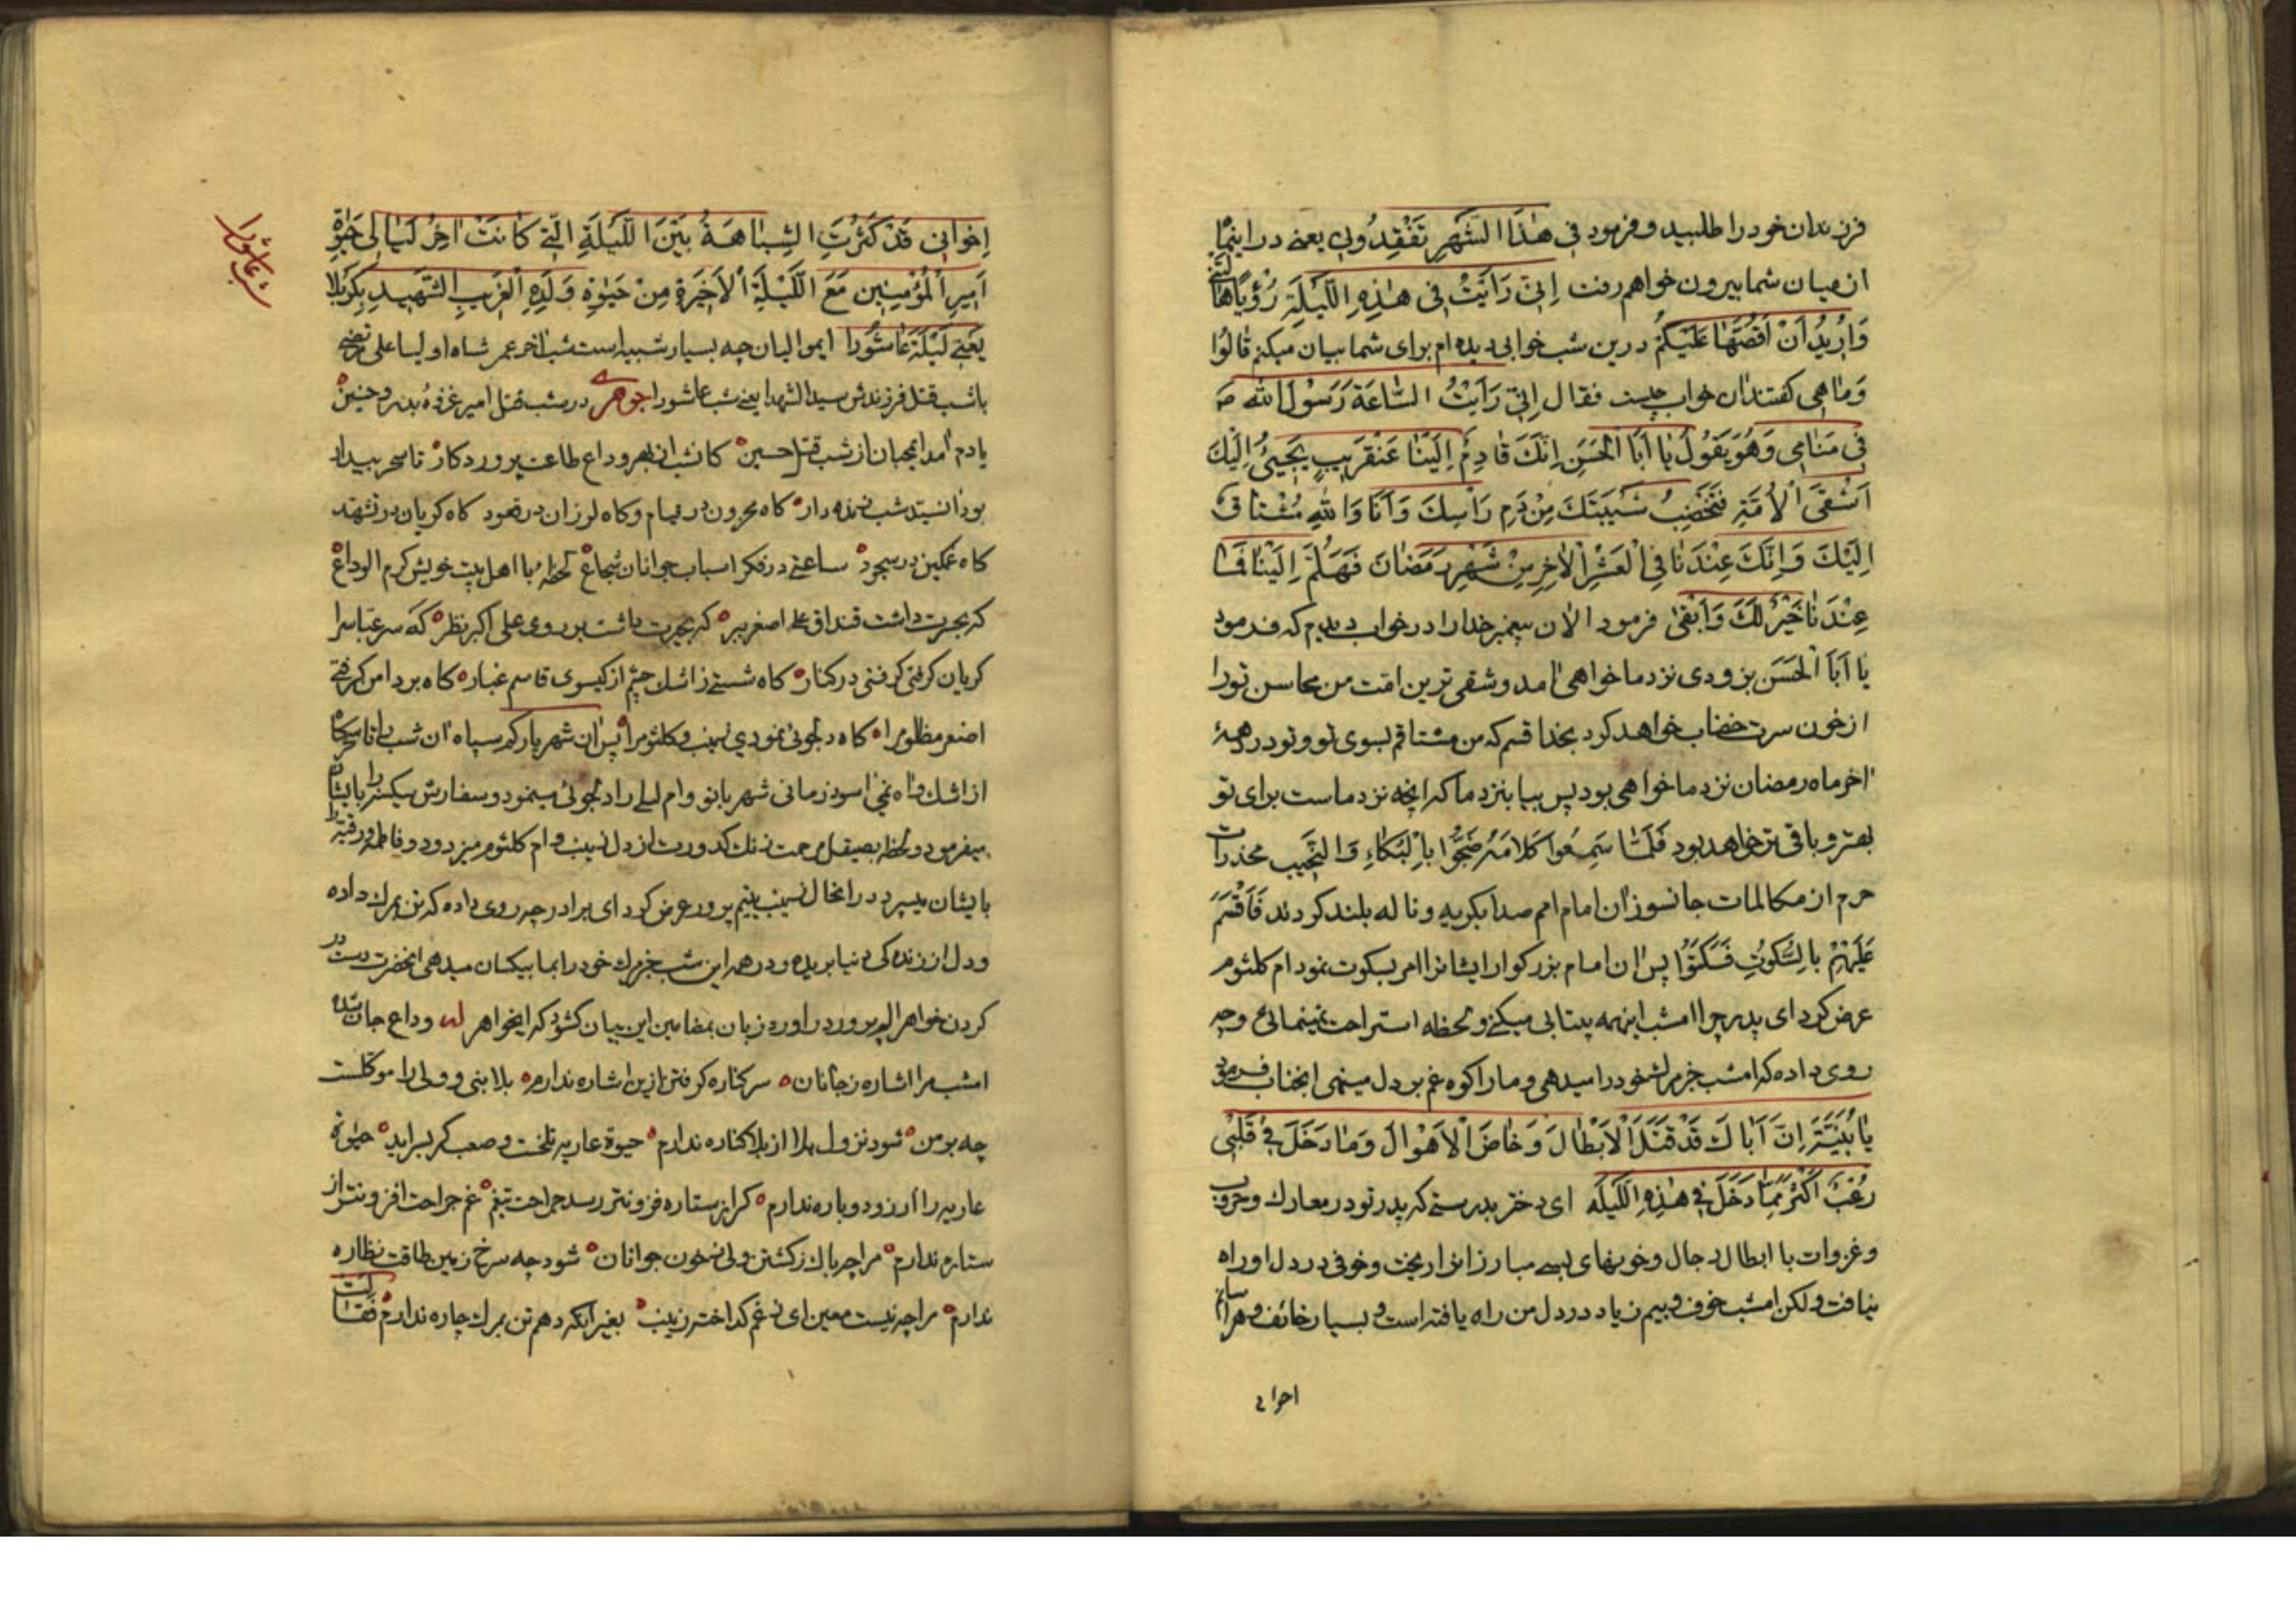 فرزندان خود را طلبید و فرمود فی هٰذَا الشَّهْرِ تَفْقِدُونی یعنی در اینماه
از میان شما بیرون خواهم رفت اِنّی رَاَیْتُ فی هٰذِهِ اللَّیْلَةِ رُؤْیًا هٰالَتْنی
وَ اُرِیدُ اَنْ اَقُصَّهٰا عَلَیْکُمْ درین شب خوابی دیده ام برای شما بیان میکنم قٰالُوا
وَمٰاهِی کفتند ان خواب چیست فقال اِنّی رَاَیْتُ السّٰاعَةَ رَسُولَ اللّٰه ص
فی مَنٰامِی وَهُوَ یَقُولُ یٰا اَبَا الْحَسَنِ اِنَّکَ قٰادِمٌ اِلَیْنٰا عَنْقَرَیبٍ یَجِیئُ اِلَیْکَ
اَشْقَی الْاُمَّةِ فَتُخَضِّبُ شَیْبَتَکَ مِنْ دَمِ رَاْسِکَ وَ اَنَا وَ اللّٰهِ مُشْتٰاقٌ
اِلَیْکَ وَ اِنَّکَ عِنْدَنٰا فِی الْعَشْرِ الْاٰخِرِ مِنْ شَهْرِ رَمَضٰانَ فَهَلُمَّ اِلَیْنٰا فَمٰا
عِنْدَنٰا خَیْرٌ لَکَ وَ اَبْقیٰ فرمود الان پیغمبر خدا را در خواب دیدم که فرمود
یا اَبَا الْحَسَن بزودی نزد ما خواهی امد و شقی ترین امّت من محاسن تورا
از خون سرت خضاب خواهد کرد بخدا قسم که من مشتاقم بسوی تو و تو در دههٔ
اخر ماه رمضان نزد ما خواهی بود پس بیا بنزد ما که انچه نزد ماست برای تو
بهتر و باقی تر خواهد بود فَلَمّٰا سَمِعُوا کَلامَهُ ضَجُّوا بِالْبُکٰاءِ وَ النَّحِیبِ مخدرات
حرم از مکالمات جانسوز ان امام امم صدا بکریه و ناله بلند کردند فَاَقْسَمَ
عَلَیْهِمْ بِالسُّکُوتِ فَسَکَتُوا پس ان امام بزرکوار ایشانرا امر بسکوت نمود ام کلثوم
عرض کرد ای پدر چرا امشب اینهمه بیتابی میکنی و لحظه استراحت نمینمائی و چه
روی داده که امشب خبر مرک خود را میدهی و ما را کوه غم بر دل مینهی انجناب فرمود
یٰا بُنَیَّةِ اِنَّ اَبٰاکَ قَدْ قَتَلَ الْاَبْطٰالَ وَ خٰاضَ الْاَهْوٰالَ وَ مٰا دَخَلَ فی قَلْبی
رُعْبٌ اَکْثَرُ مِمّٰا دَخَلَ فی هٰذِهِ اللَّیْلَه ای دختر بدرستی که پدر تو در معارک و حروب
و غزوات با ابطال رجال و خونهای بسی مبارزانرا ریخت و خوفی در دل او راه
نیافت ولکن امشب خوف و بیم زیاد در دل من راه یافته است و بسیار خائف و هراسانم
اِخوانی قَدْ کَثُرَتِ الشِّبٰاهَةُ بَیْنَ اللَّیْلَةِ الَّتی کٰانَتْ اٰخِرُ لَیٰالی حَیٰوةِ
اَمِیرِ الْمُؤْمِنینِ مَعَ اللَّیْلَةِ الْاَخِیَرةِ مِنْ حَیٰوةِ وَلَدِهِ الْغَرِیبِ الشَّهِیدِ بِکَرْبَلا
یَعْنی لَیْلَةَ عٰاشُورٰا ایموالیان چه بسیار شبیه است شب اخر عمر شاه اولیا علی مرتضی
با شب قتل فرزندش سید الشهدا یعنی شب عاشورا جوهری در شب قتل امیر غزوهٔ بدر و حنین
یادم امد ایمحبان از شب قتل حسین کانشب از بهر وداع طاعت پروردکار تا سحر بیدار
بود انسید شب زنده دار کاه محزون در قیام و کاه لرزان در قعود کاه کریان در تشهد
کاه غمکین در سجود ساعتی در فکر اسباب جوانان شجاع لحظه با اهل بیت خویش کرم الوداع
که بحسرت داشت قنداق علی اصغر ببر که بحیرت داشت بر روی علی اکبر نظر که سر عباسرا
کریان کرفتی کرفتی در کنار کاه شستی ز اشک چشم از کیسوی قاسم غبار کاه بر دامن کرفتی
اصغر مظلومرا کاه دلجوئی نمودی زینب و کلثومرا پس ان شهریار کم سپاه ان شب را تا سحرکاه
از اشک و اه نمی اسود زمانی شهربانو و ام لیلی را دلجوئی مینمود و سفارش سیکنه را بایشان
میفرمود و لحظه بصیقل مرحمت زنک کدورت از دل زینب و ام کلثوم میزدود و فاطمه و رقیه را
بایشان میسپرد در انحال زینب یتیم پرور عرض کرد ای برادر چه روی داده که تن بمرک داده
و دل از زنده کی دنیا بریده و در همه این شب خبر مرک خود را بما بیکسان میدهی انحضرت دست در
کردن خواهر الم پرور در اورد زبان بمضامین این بیان کشود که ایخواهر لمه وداع جان شده
امشب مرا اشاره ز جانان سر کناره کرفتن ازین اشاره ندارم بلا بنی و ولی را موکلست
چه بر من شود نزول بلا از بلا کناره ندارم حیوة عاریه تلخست و صعب کر بسراید حیوة
عاریه را ارزو دوباره ندارم کر از ستاره فزونتر رسد جراحت تیغم غم جراحت افزونتر از
ستاره ندارم مرا چه باک ز کشتن ولی ز خون جوانان شود چه سرخ زمین طاقت نظاره
ندارم مرا چه نیست معین ای ز غم کداخته زینب بغیر اینکه دهم تن بمرک چاره ندارم فَقٰالَتْ
شب عاشورا